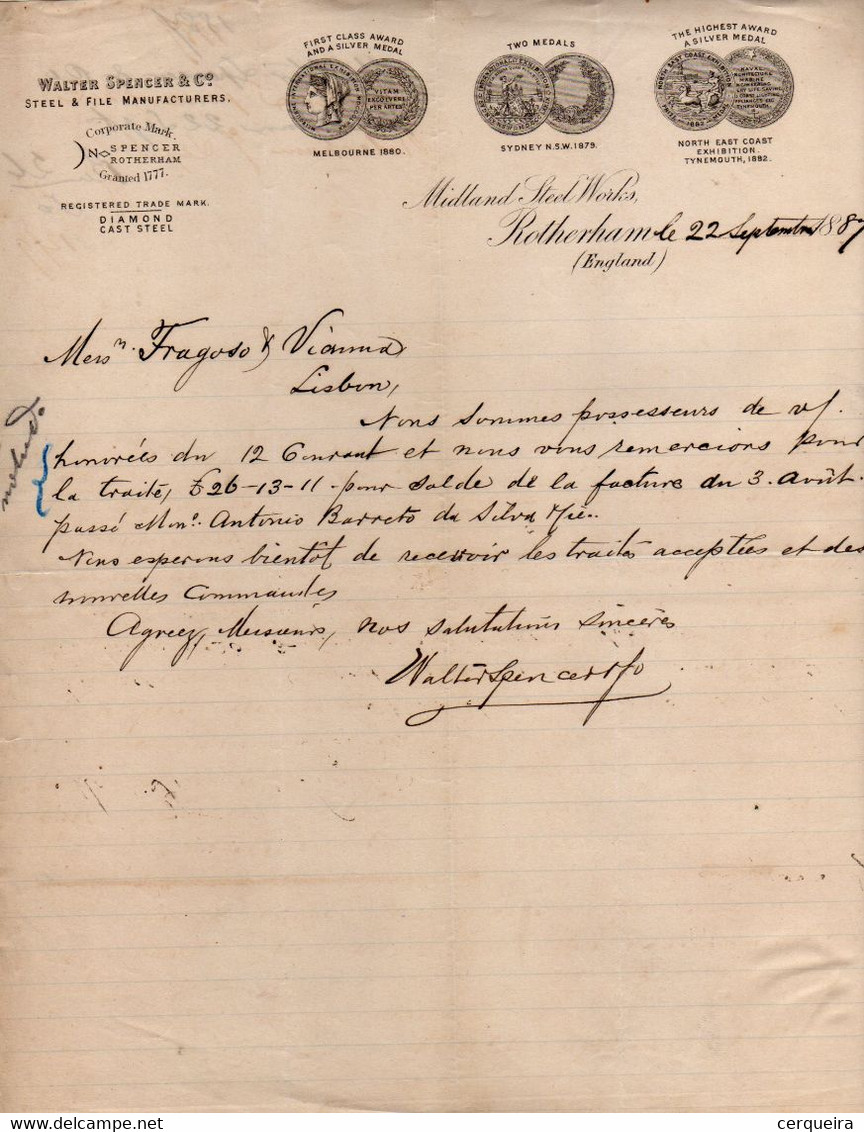 WALTER SPENCER & Cº
STEEL & FILE MANUFACTURERS.
Corporate Mark.
N SPENCER
ROTHERHAM
Granted 1777.
REGISTERED TRADE MARK.
DIAMOND
CAST STEEL
FIRST CLASS AWARD
AND A SILVER MEDAL
VITAM
EXCOLUERE
PER ARTES
MELBOURNE 1880.
TWO MEDALS
SYDNEY N.S.W. 1879.
THE HIGHEST AWARD
A SILVER MEDAL
NORTH EAST COAST
EXHIBITION.
TYNEMOUTH, 1882.
Midland Steel Works,
Rotherham le 22 Septembre 1887
(England)
Messrs. Fragoso & Vianna
Lisbon,
Nous sommes possesseurs de v/.
honorées du 12 Courant et nous vous remercions pour
la traité, £26-13-11 pour solde de la facture du 3. Août.
passé Monr. Antonio Barreto da Silva
Nous esperons bientôt de recevoir les traités acceptées et des
nouvelles Commandes
Agreez, Messieurs, nos salutations sincères
Walter Spencer & Co
cerqueira